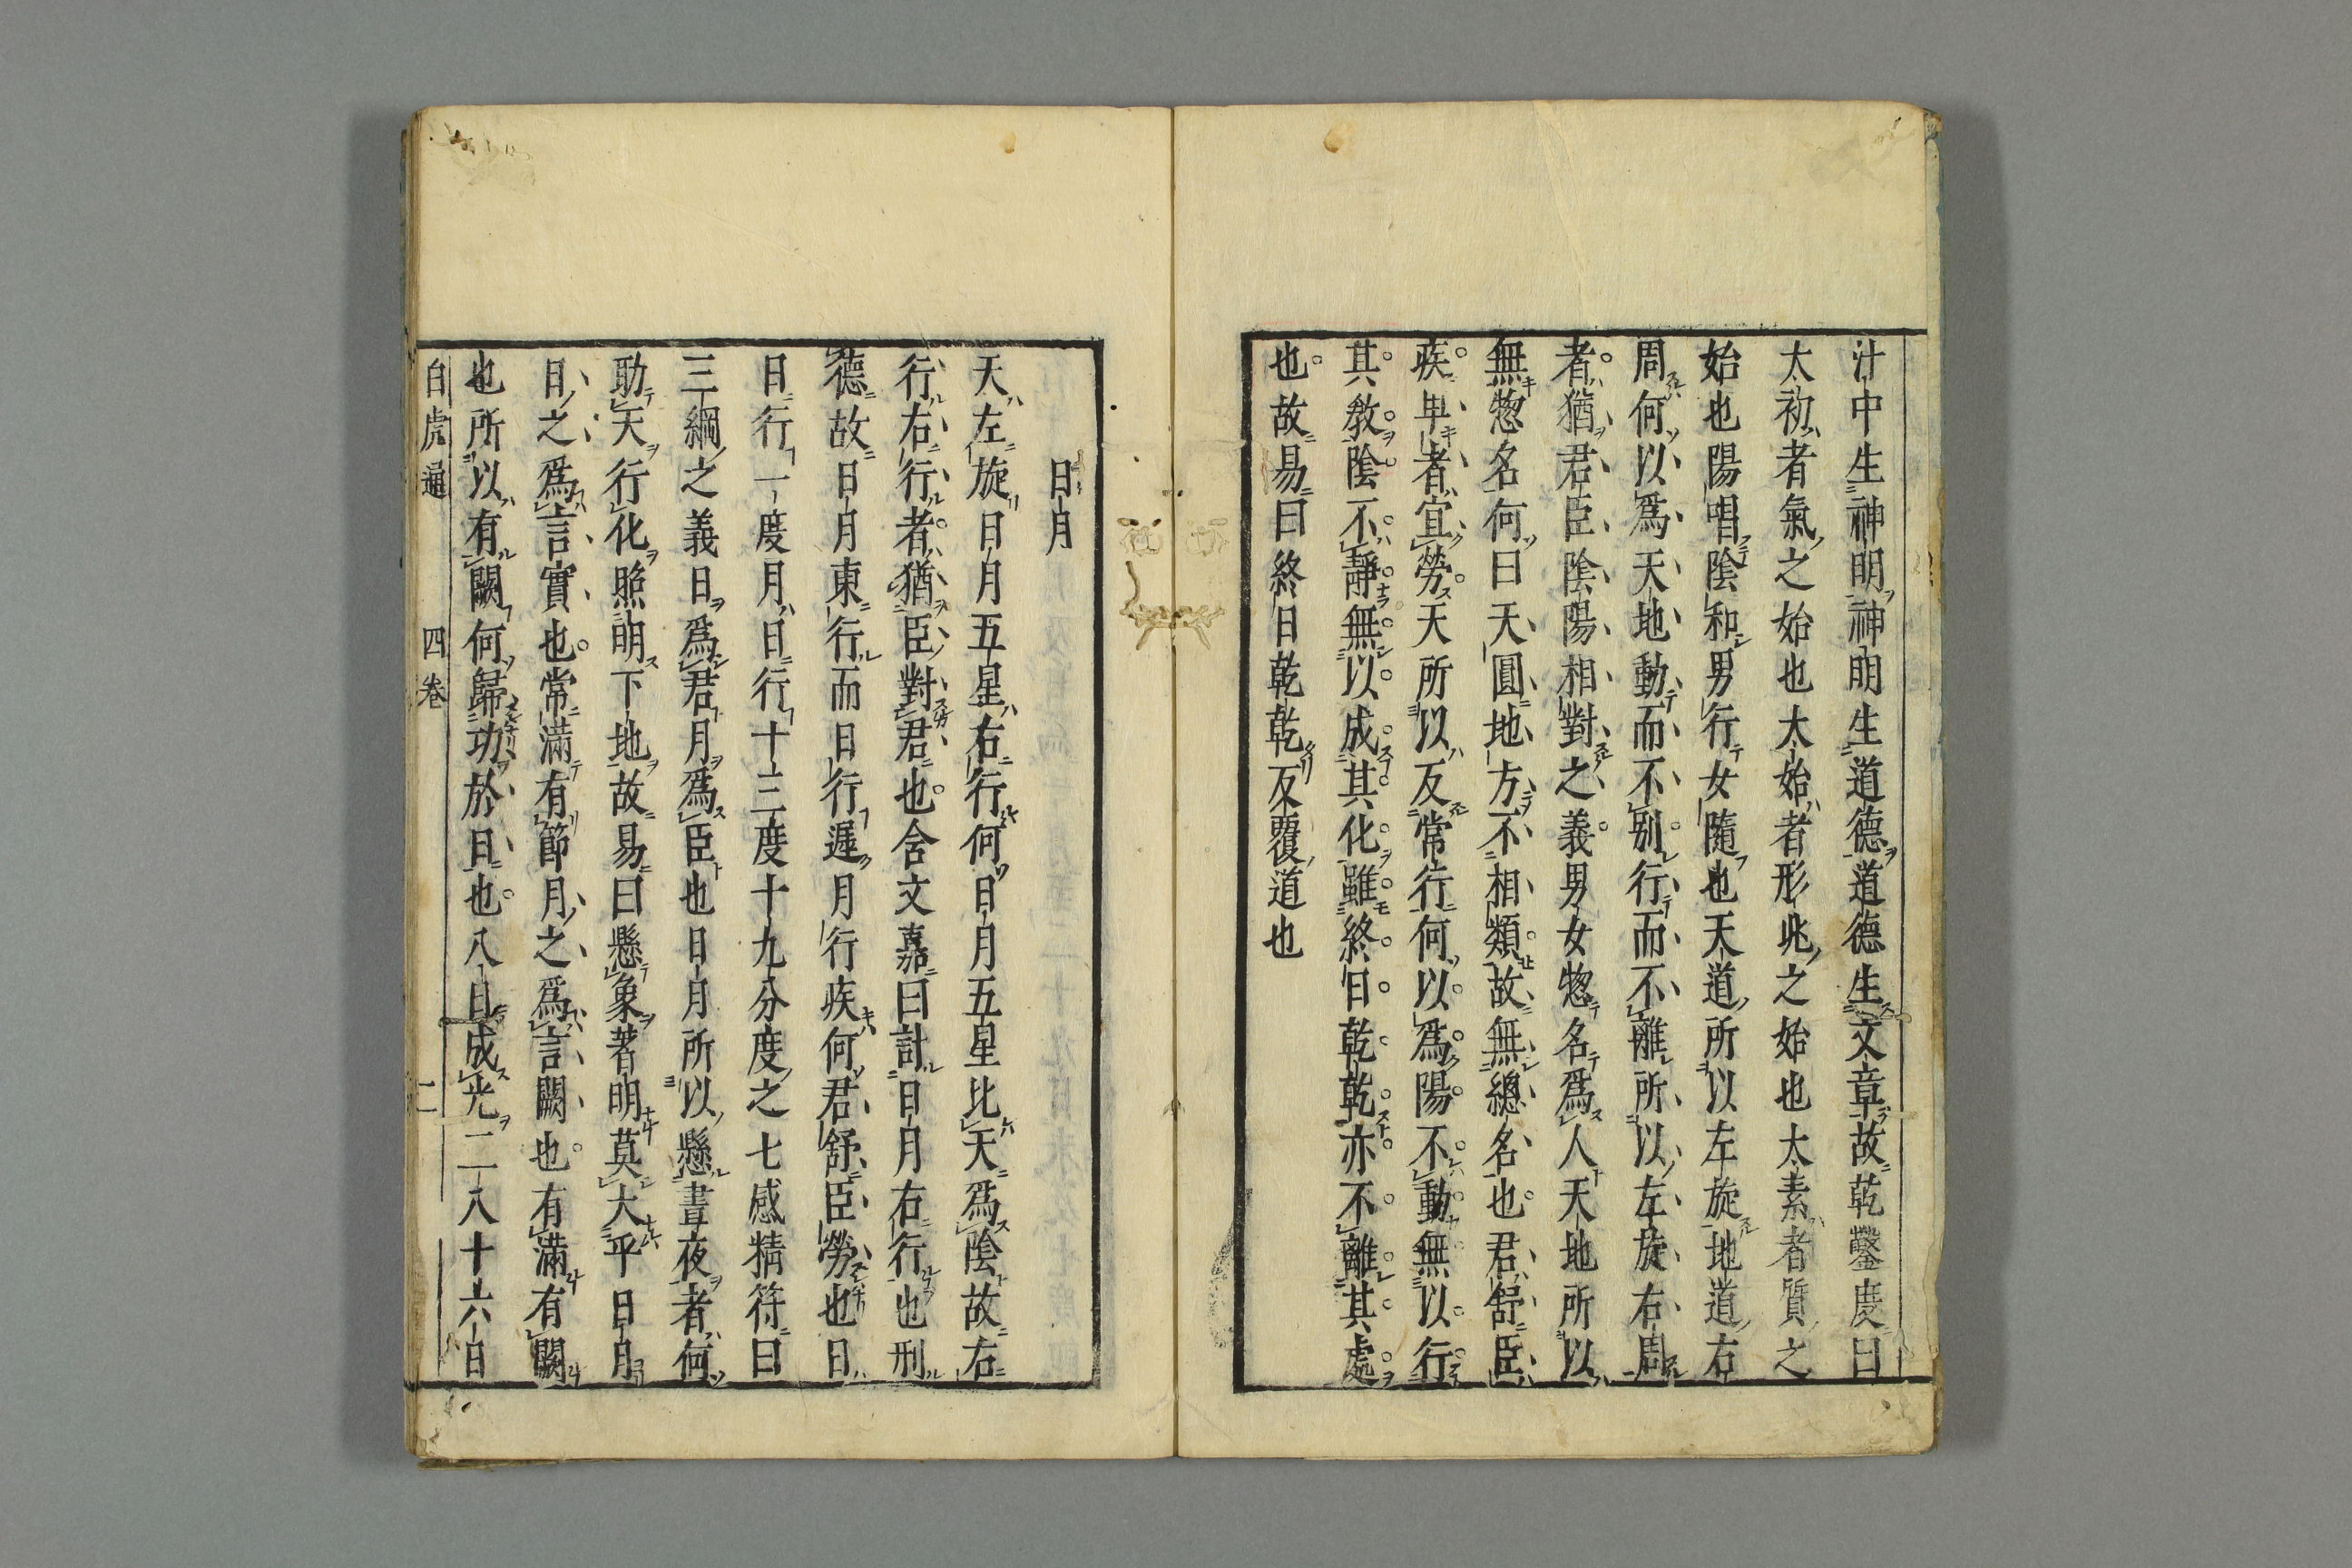 汁中生神明神明生道德道德生文章故乾鑿度曰
太初者氣之始也太始者形兆之始也太素者質之
始也陽唱陰和男行女隨也天道所以左旋地道右
周何以爲天地動而不别行而不離所以左旋右周
者猶君臣陰陽相對之義男女惣名爲人天地所以
無惣名何曰天圓地方不相類故無總名也君舒臣
疾卑者宜勞天所以反常行何以爲陽不動無以行
其敎陰不靜無以成其化雖終日乾乾亦不離其處
也故易曰終日乾乾反覆道也
日月
天左旋日月五星右行何日月五星比天爲陰故右
行右行者猶臣對君也含文嘉曰計日月右行也刑
德故日月東行而日行遲月行疾何君舒臣勞也日
日行一度月日行十三度十九分度之七感精符曰
三綱之義日爲君月爲臣也日月所以懸晝夜者何
助天行化照明下地故易曰懸象著明莫大乎日月
日之爲言實也常滿有節月之爲言闕也有滿有闕
也所以有闕何歸功於日也八日成光二八十六日
白虎通 四卷 二